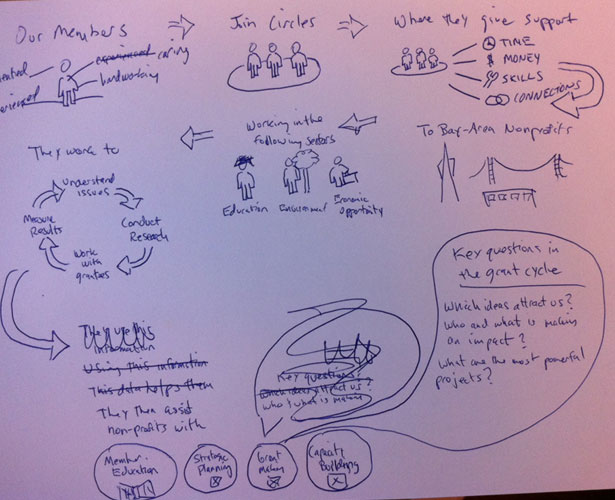 Our Members
Join Circles
Where they give support
experienced caring
hardworking
TIME
MONEY
SKILLS
CONNECTIONS
To Bay-Area Nonprofits
Working in the
following sectors
Education
Environmental
Economic
Opportunity
They work to
Understand
issues
Conduct
Research
Work
with
grantees
Measure
Results
Key questions in
the grant cycle
Which ideas attract us?
Who and what is making
an impact?
What are the most powerful
projects?
They use this
information
Using this information
This data helps them
They then assist
non-profits with
Key questions:
which ideas attract us?
who & what is making
Member
Education
Strategic
Planning
Grant
making
Capacity
Building